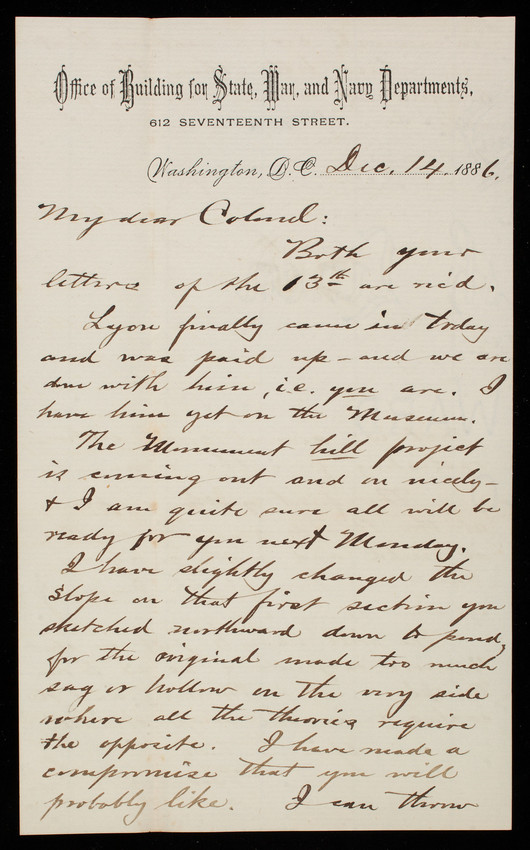 Office of Building for State, War, and Navy Departments,
612 SEVENTEENTH STREET.
Washington, D.C. Dec. 14. 1886.
My dear Colonel:
Both your
letters of the 13th are rec'd.
Lyon finally came in today
and was paid up – and we are
done with him, i.e. you are. I
have him yet on the Museum.
The Monument hill project
is coming out and on nicely –
& I am quite sure all will be
ready for you next Monday.
I have slightly changed the
slope on that first section you
sketched northward down to pond,
for the original made too much
sag or hollow on the very side
where all the theories require
the opposite. I have made a
compromise that you will
probably like. I can throw